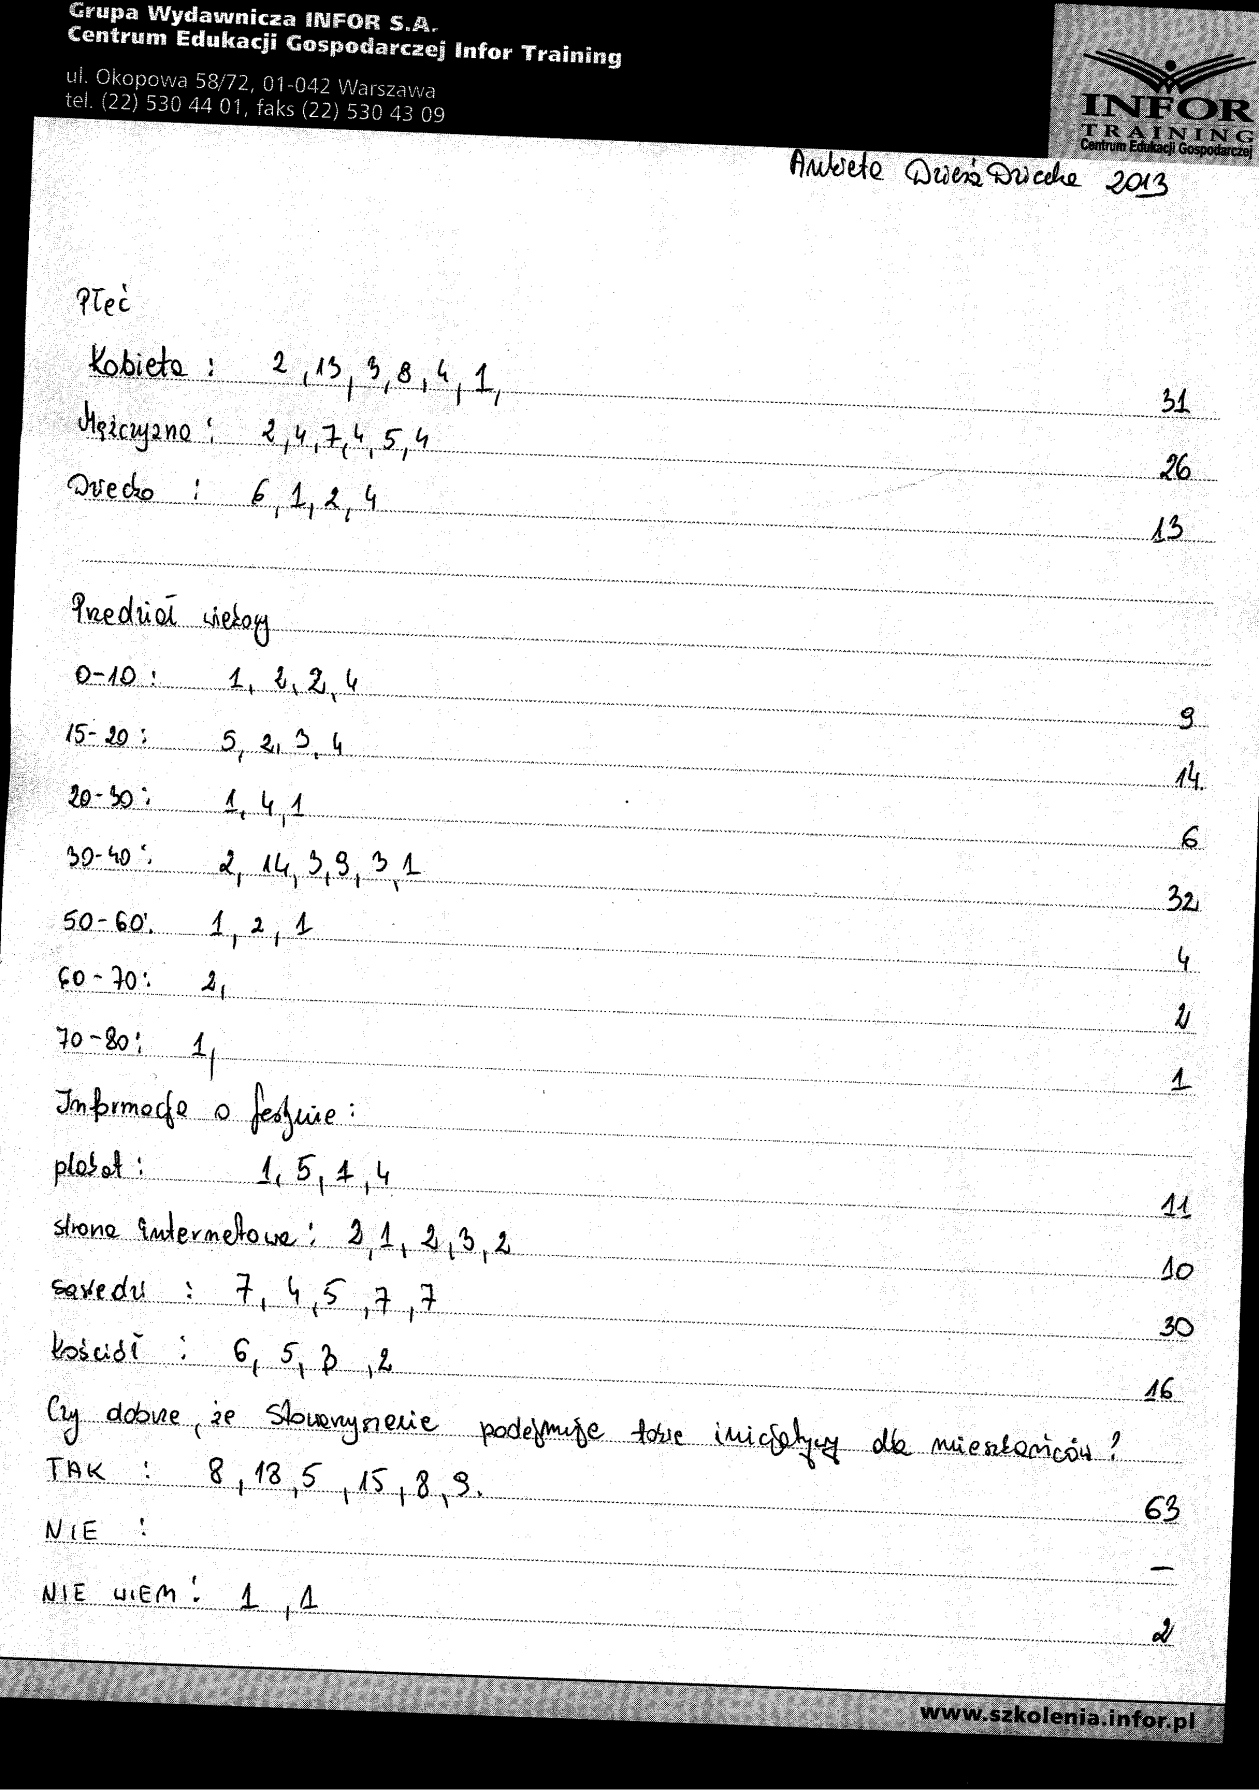 Grupa Wydawnicza INFOR S.A.
Centrum Edukacji Gospodarczej Infor Training
ul. Okopowa 58/72, 01-042 Warszawa
tel. (22) 530 44 01, faks (22) 530 43 09
INFOR
TRAINING
Centrum Edukacji Gospodarczej
Ankieta Dzień Dziecka 2013
Płeć
Kobieta : 2, 13, 3, 8, 4, 1, 31
Mężczyzna : 2, 4, 7, 4, 5, 4 26
Dziecko : 6, 1, 2, 4 13
Przedział wiekowy
0-10 : 1, 2, 2, 4 9
15-20 : 5, 2, 3, 4 14
20-30 : 1, 4, 1 6
30-40 : 2, 14, 3, 9, 3, 1 32
50-60 : 1, 2, 1 4
60-70 : 2, 2
70-80 : 1, 1
Informacja o festynie :
plakat : 1, 5, 1, 4 11
strona internetowa : 2, 1, 2, 3, 2 10
sąsiedzi : 7, 4, 5, 7, 7 30
kościół : 6, 5, 3, 2 16
Czy dobrze, że Stowarzyszenie podejmuje takie inicjatywy dla mieszkańców?
TAK : 8, 18, 5, 15, 8, 9. 63
NIE : –
NIE WIEM : 1, 1 2
www.szkolenia.infor.pl